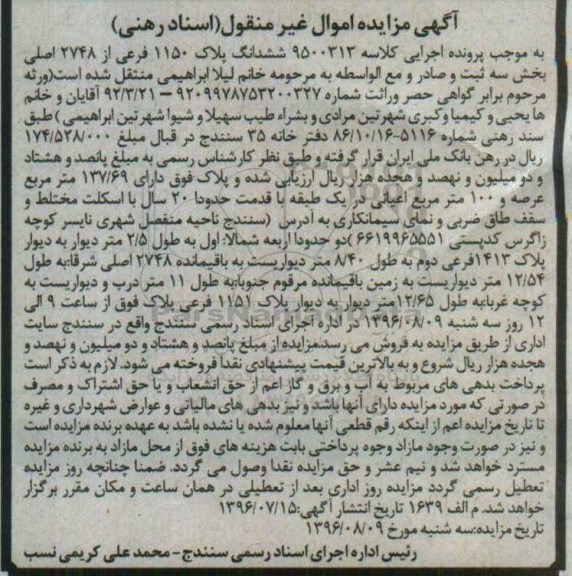 آگهی مزایده اموال غیر منقول(اسناد رهنی)
به موجب پرونده اجرایی کلاسه ۹۵۰۰۳۱۳ ششدانگ پلاک ۱۱۵۰ فرعی از ۲۷۴۸ اصلی
بخش سه ثبت و صادر و مع الواسطه به مرحومه خانم لیلا ابراهیمی منتقل شده است(ورثه
مرحوم برابر گواهی حصر وراثت شماره ۹۲۰۹۹۷۸۷۵۳۲۰۰۳۲۷ – ۹۲/۳/۲۱ آقایان و خانم
ها یحیی و کیمیا وکبری شهرتین مرادی و بشراء طیب سهیلا و شیوا شهرتین ابراهیمی )طبق
سند رهنی شماره ۵۱۱۶-۸۶/۱۰/۱۶ دفتر خانه ۳۵ سنندج در قبال مبلغ ۱۷۴/۵۲۸/۰۰۰
ریال در رهن بانک ملی ایران قرار گرفته و طبق نظر کارشناس رسمی به مبلغ پانصد و هشتاد
و دو میلیون و نهصد و هجده هزار ریال ارزیابی شده و پلاک فوق دارای ۱۳۷/۶۹ متر مربع
عرصه و ۱۰۰ متر مربع اعیانی در یک طبقه با قدمت حدودا ۲۰ سال با اسکلت مختلط و
سقف طاق ضربی و نمای سیمانکاری به آدرس (سنندج ناحیه منفصل شهری نایسر کوچه
زاگرس کدپستی ۶۶۱۹۹۶۵۵۵۱ )دو حدودا اربعه شمالا: اول به طول ۲/۵ متر دیوار به دیوار
پلاک ۱۴۱۳فرعی دوم به طول ۸/۴۰ متر دیواریست به باقیمانده ۲۷۴۸ اصلی شرقا:به طول
۱۲/۵۴ متر دیواریست به زمین باقیمانده مرقوم جنوبا:به طول ۱۱ متر درب و دیواریست به
کوچه غربا:به طول ۱۲/۶۵متر دیوار به دیوار پلاک ۱۱۵۱ فرعی پلاک فوق از ساعت ۹ الی
۱۲ روز سه شنبه ۱۳۹۶/۰۸/۰۹ در اداره اجرای اسناد رسمی سنندج واقع در سنندج سایت
اداری از طریق مزایده به فروش می رسد.مزایده از مبلغ پانصد و هشتاد و دو میلیون و نهصد و
هجده هزار ریال شروع و به بالاترین قیمت پیشنهادی نقدا فروخته می شود. لازم به ذکر است
پرداخت بدهی های مربوط به آب و برق و گاز اعم از حق انشعاب و یا حق اشتراک و مصرف
در صورتی که مورد مزایده دارای آنها باشد و نیز بدهی های مالیاتی و عوارض شهرداری و غیره
تا تاریخ مزایده اعم از اینکه رقم قطعی آنها معلوم شده یا نشده باشد به عهده برنده مزایده است
و نیز در صورت وجود مازاد وجوه پرداختی بابت هزینه های فوق از محل مازاد به برنده مزایده
مسترد خواهد شد و نیم عشر و حق مزایده نقدا وصول می گردد. ضمنا چنانچه روز مزایده
تعطیل رسمی گردد مزایده روز اداری بعد از تعطیلی در همان ساعت و مکان مقرر برگزار
خواهد شد. م الف ۱۶۳۹ تاریخ انتشار آگهی:۱۳۹۶/۰۷/۱۵
تاریخ مزایده:سه شنبه مورخ ۱۳۹۶/۰۸/۰۹
رئیس اداره اجرای اسناد رسمی سنندج- محمد علی کریمی نسب